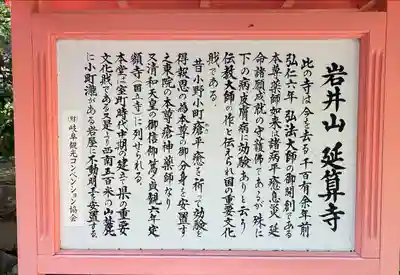 岩井山 延算寺
此の寺は今を去る千百有余年前
弘仁六年 弘法大師の御開創である
本尊薬師如来は諸病平癒息災延
命諸願成就の守護佛であるが殊に
下の病皮膚病に効験ありと云う
伝教大師の作と伝えられ国の重要文化
財である。
昔小野小町瘡平癒を祈って効験を
得報恩の為本尊の御分身を安置す
之東院の本尊瘡神薬師なり
又清和天皇の御信仰篤く貞観六年定
額寺(国立寺)に列せられる。
本堂は室町時代中期の建立で県の重要
文化財である又是より西南五百米の山麓
に小町漉がある岩屋に不動明王を安置する
(財)岐阜観光コンベンション協会